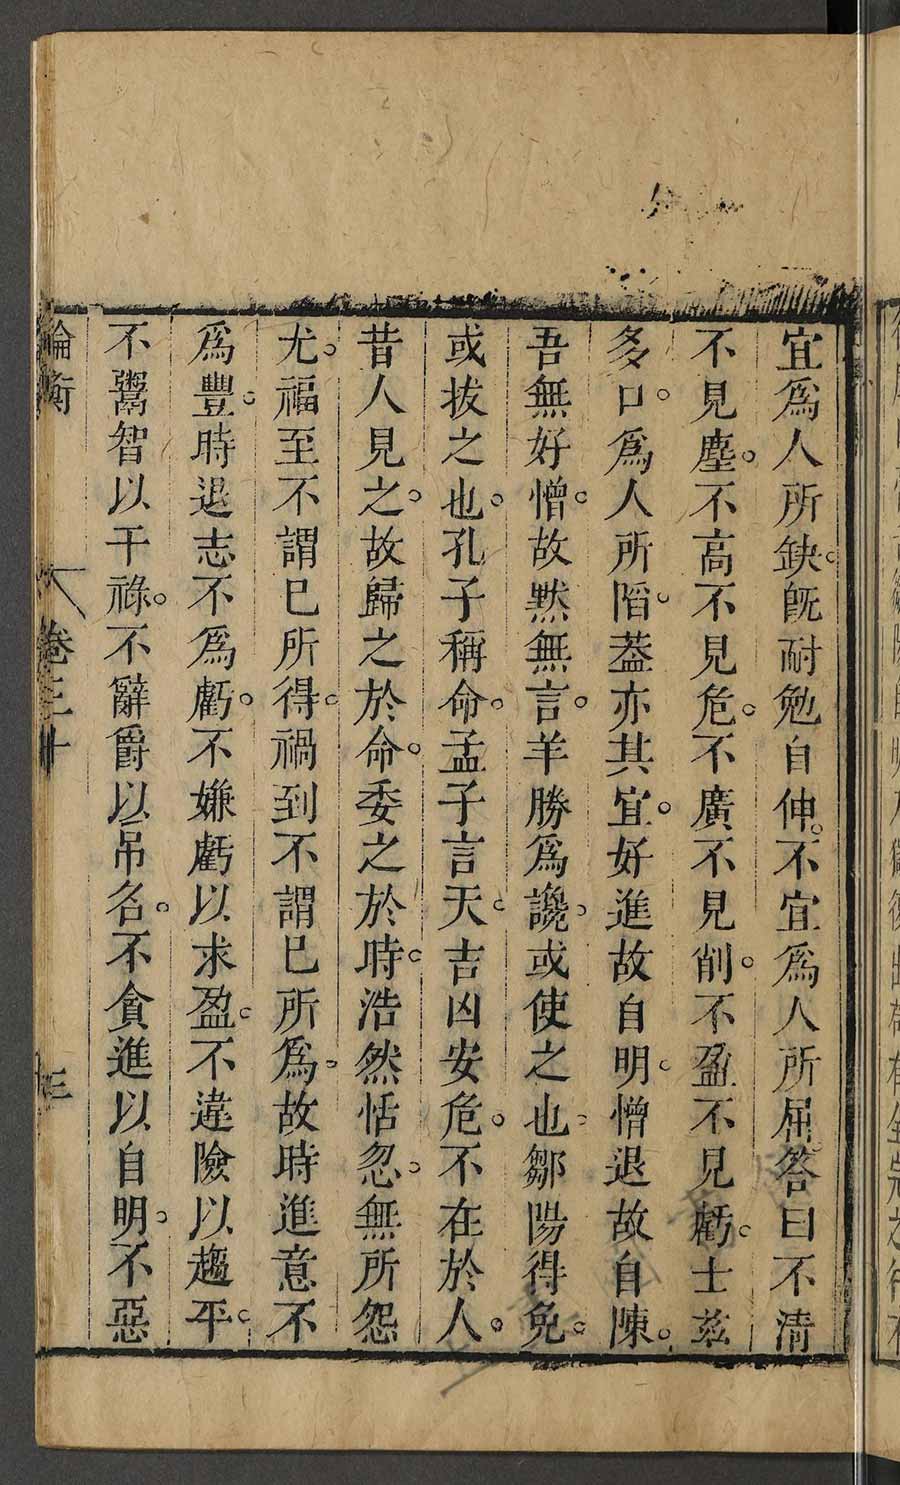 宜爲人所缺。既耐勉自伸。不宜爲人所屈答曰不清
不見塵。不高不見危。不廣不見削。不盈不見虧。士兹
多口。爲人所陷。蓋亦其宜。好進故自明。憎退故自陳。
吾無好憎。故默無言。羊勝爲讒。或使之也。鄒陽得免。
或拔之也。孔子稱命。孟子言天。吉凶安危。不在於人。
昔人見之。故歸之於命。委之於時。浩然恬忽。無所怨
尤。福至不謂已所得。禍到不謂已所爲。故時進意不
爲豐。時退志不爲虧。不嫌虧以求盈。不違險以趨平。
不鬻智以干祿。不辭爵以吊名。不貪進以自明。不惡
論衡
卷三十
三